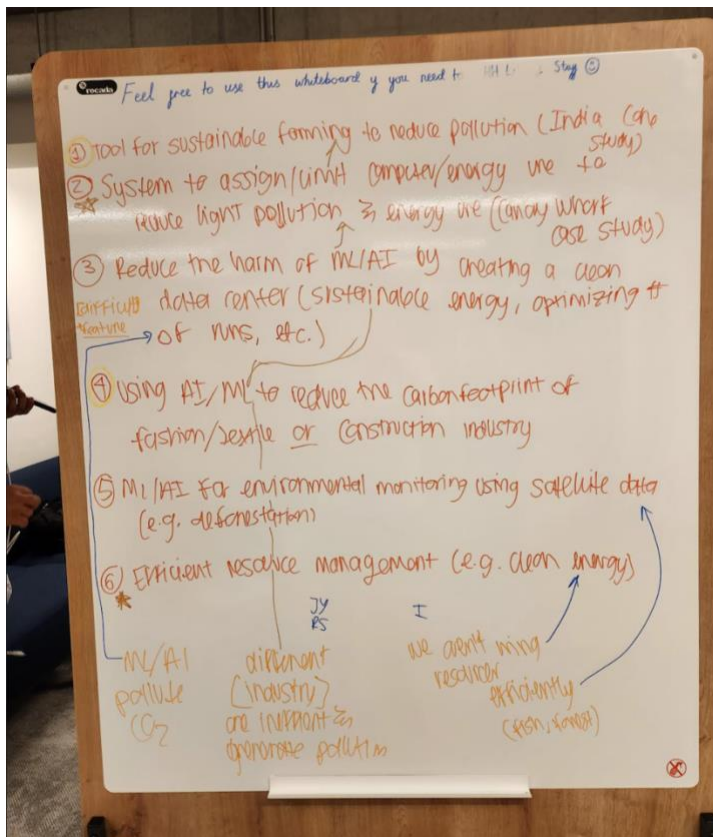 rocada
Feel free to use this whiteboard if you need to Stay
① Tool for sustainable farming to reduce pollution (India Case
Study)
② System to assign/limit computer/energy use to
reduce light pollution & energy use (Canary Wharf
Case Study)
③ Reduce the harm of ML/AI by creating a clean
difficult data center (sustainable energy, optimizing #
feature of runs, etc.)
④ Using AI/ML to reduce the carbon footprint of
fashion/textile or construction industry
⑤ ML/AI for environmental monitoring using satellite data
(e.g. deforestation)
⑥ Efficient resource management (e.g. clean energy)
JY I
RS
ML/AI different we aren't using
pollute (industry) resources
CO2 are inefficient & efficiently
generate pollution (fish, forest)